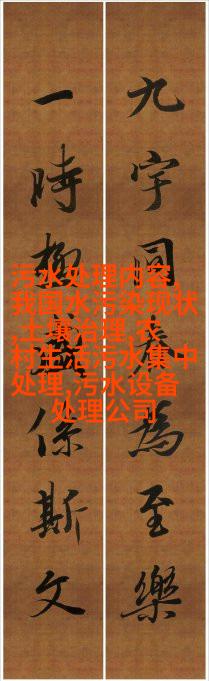 九宇同春為至樂
一時係斯文
污水处理内容,
我国水污染现状
,土壤治理,农
村生活污水集中
处理,污水设备
处理公司